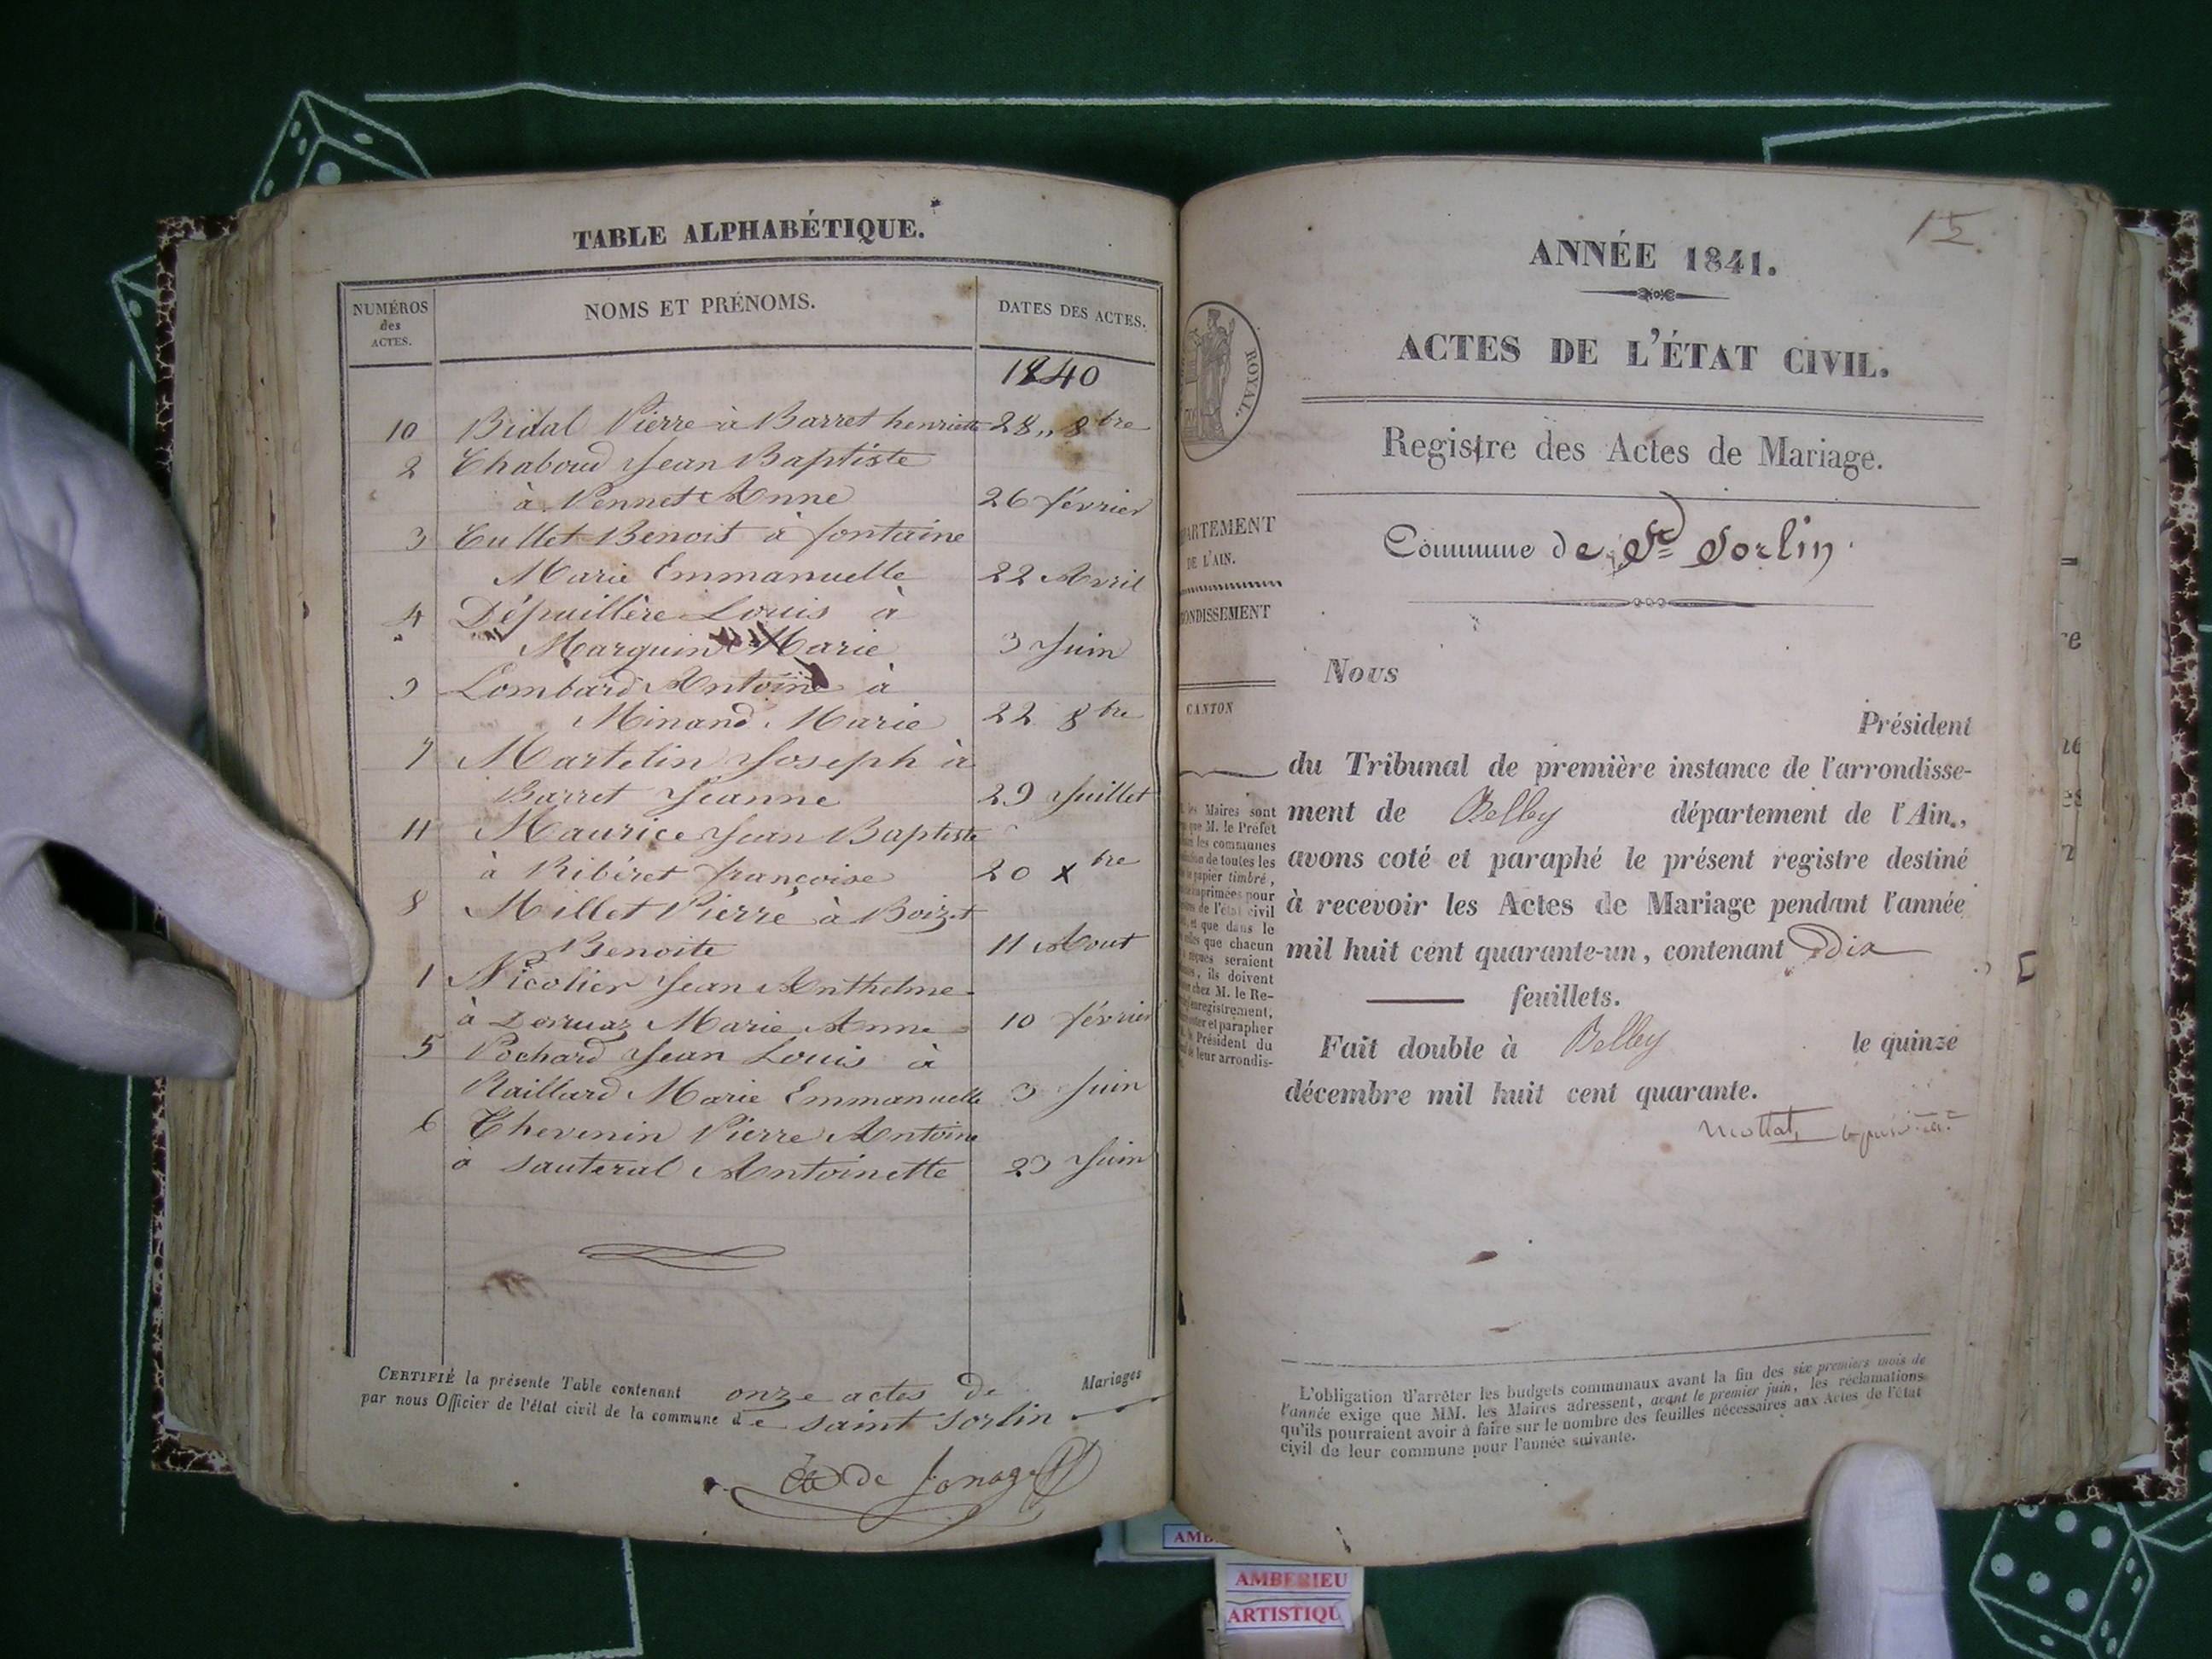 TABLE ALPHABÉTIQUE.
NUMÉROS
des
ACTES.
NOMS ET PRÉNOMS.
DATES DES ACTES.
1840
10 Bidal Pierre à Barret henriette 28 „ 8bre
2 Chaboud Jean Baptiste
à Vennet Anne 26 février
3 Cullet Benoit à fontaine
Marie Emmanuelle 22 Avril
4 Dépuillère Louis à
Marguin Marie 3 Juin
9 Lombard Antoine à
Minand Marie 22 8bre
7 Martelin Joseph à
Barret Jeanne 29 Juillet
11 Maurice Jean Baptiste
à Ribéret françoise 20 xbre
8 Millet Pierre à Boizet
Benoite 11 Aout
1 Nicolier Jean Anthelme
à Marie Anne 10 février
5 Pochard Jean Louis à
Raillard Marie Emmanuelle 3 Juin
6 Thevenin Pierre Antoine
à Sauteral Antoinette 23 Juin
CERTIFIÉ la présente Table contenant onze actes de Mariages
par nous Officier de l'état civil de la commune de saint Sorlin
de
15
ANNÉE 1841.
ACTES DE L'ÉTAT CIVIL.
ROYAL.
Registre des Actes de Mariage.
Commune de St Sorlin.
PARTEMENT
DE L'AIN.
ONDISSEMENT
CANTON
les Maires sont
que M. le Préfet
les communes
de toutes les
papier timbré,
imprimées pour
de l'état civil
et que dans le
que chacun
seraient
ils doivent
chez M. le Re-
enregistrement,
et parapher
Président du
leur arrondis-
Nous
Président
du Tribunal de première instance de l'arrondisse-
ment de Belley département de l'Ain,
avons coté et paraphé le présent registre destiné
à recevoir les Actes de Mariage pendant l'année
mil huit cent quarante-un, contenant Dix
feuillets.
Fait double à Belley le quinze
décembre mil huit cent quarante.
L'obligation d'arrêter les budgets communaux avant la fin des six premiers mois de
l'année exige que MM. les Maires adressent, avant le premier juin, les réclamations
qu'ils pourraient avoir à faire sur le nombre des feuilles nécessaires aux Actes de l'état
civil de leur commune pour l'année suivante.
AMBERIEU
ARTISTIQU